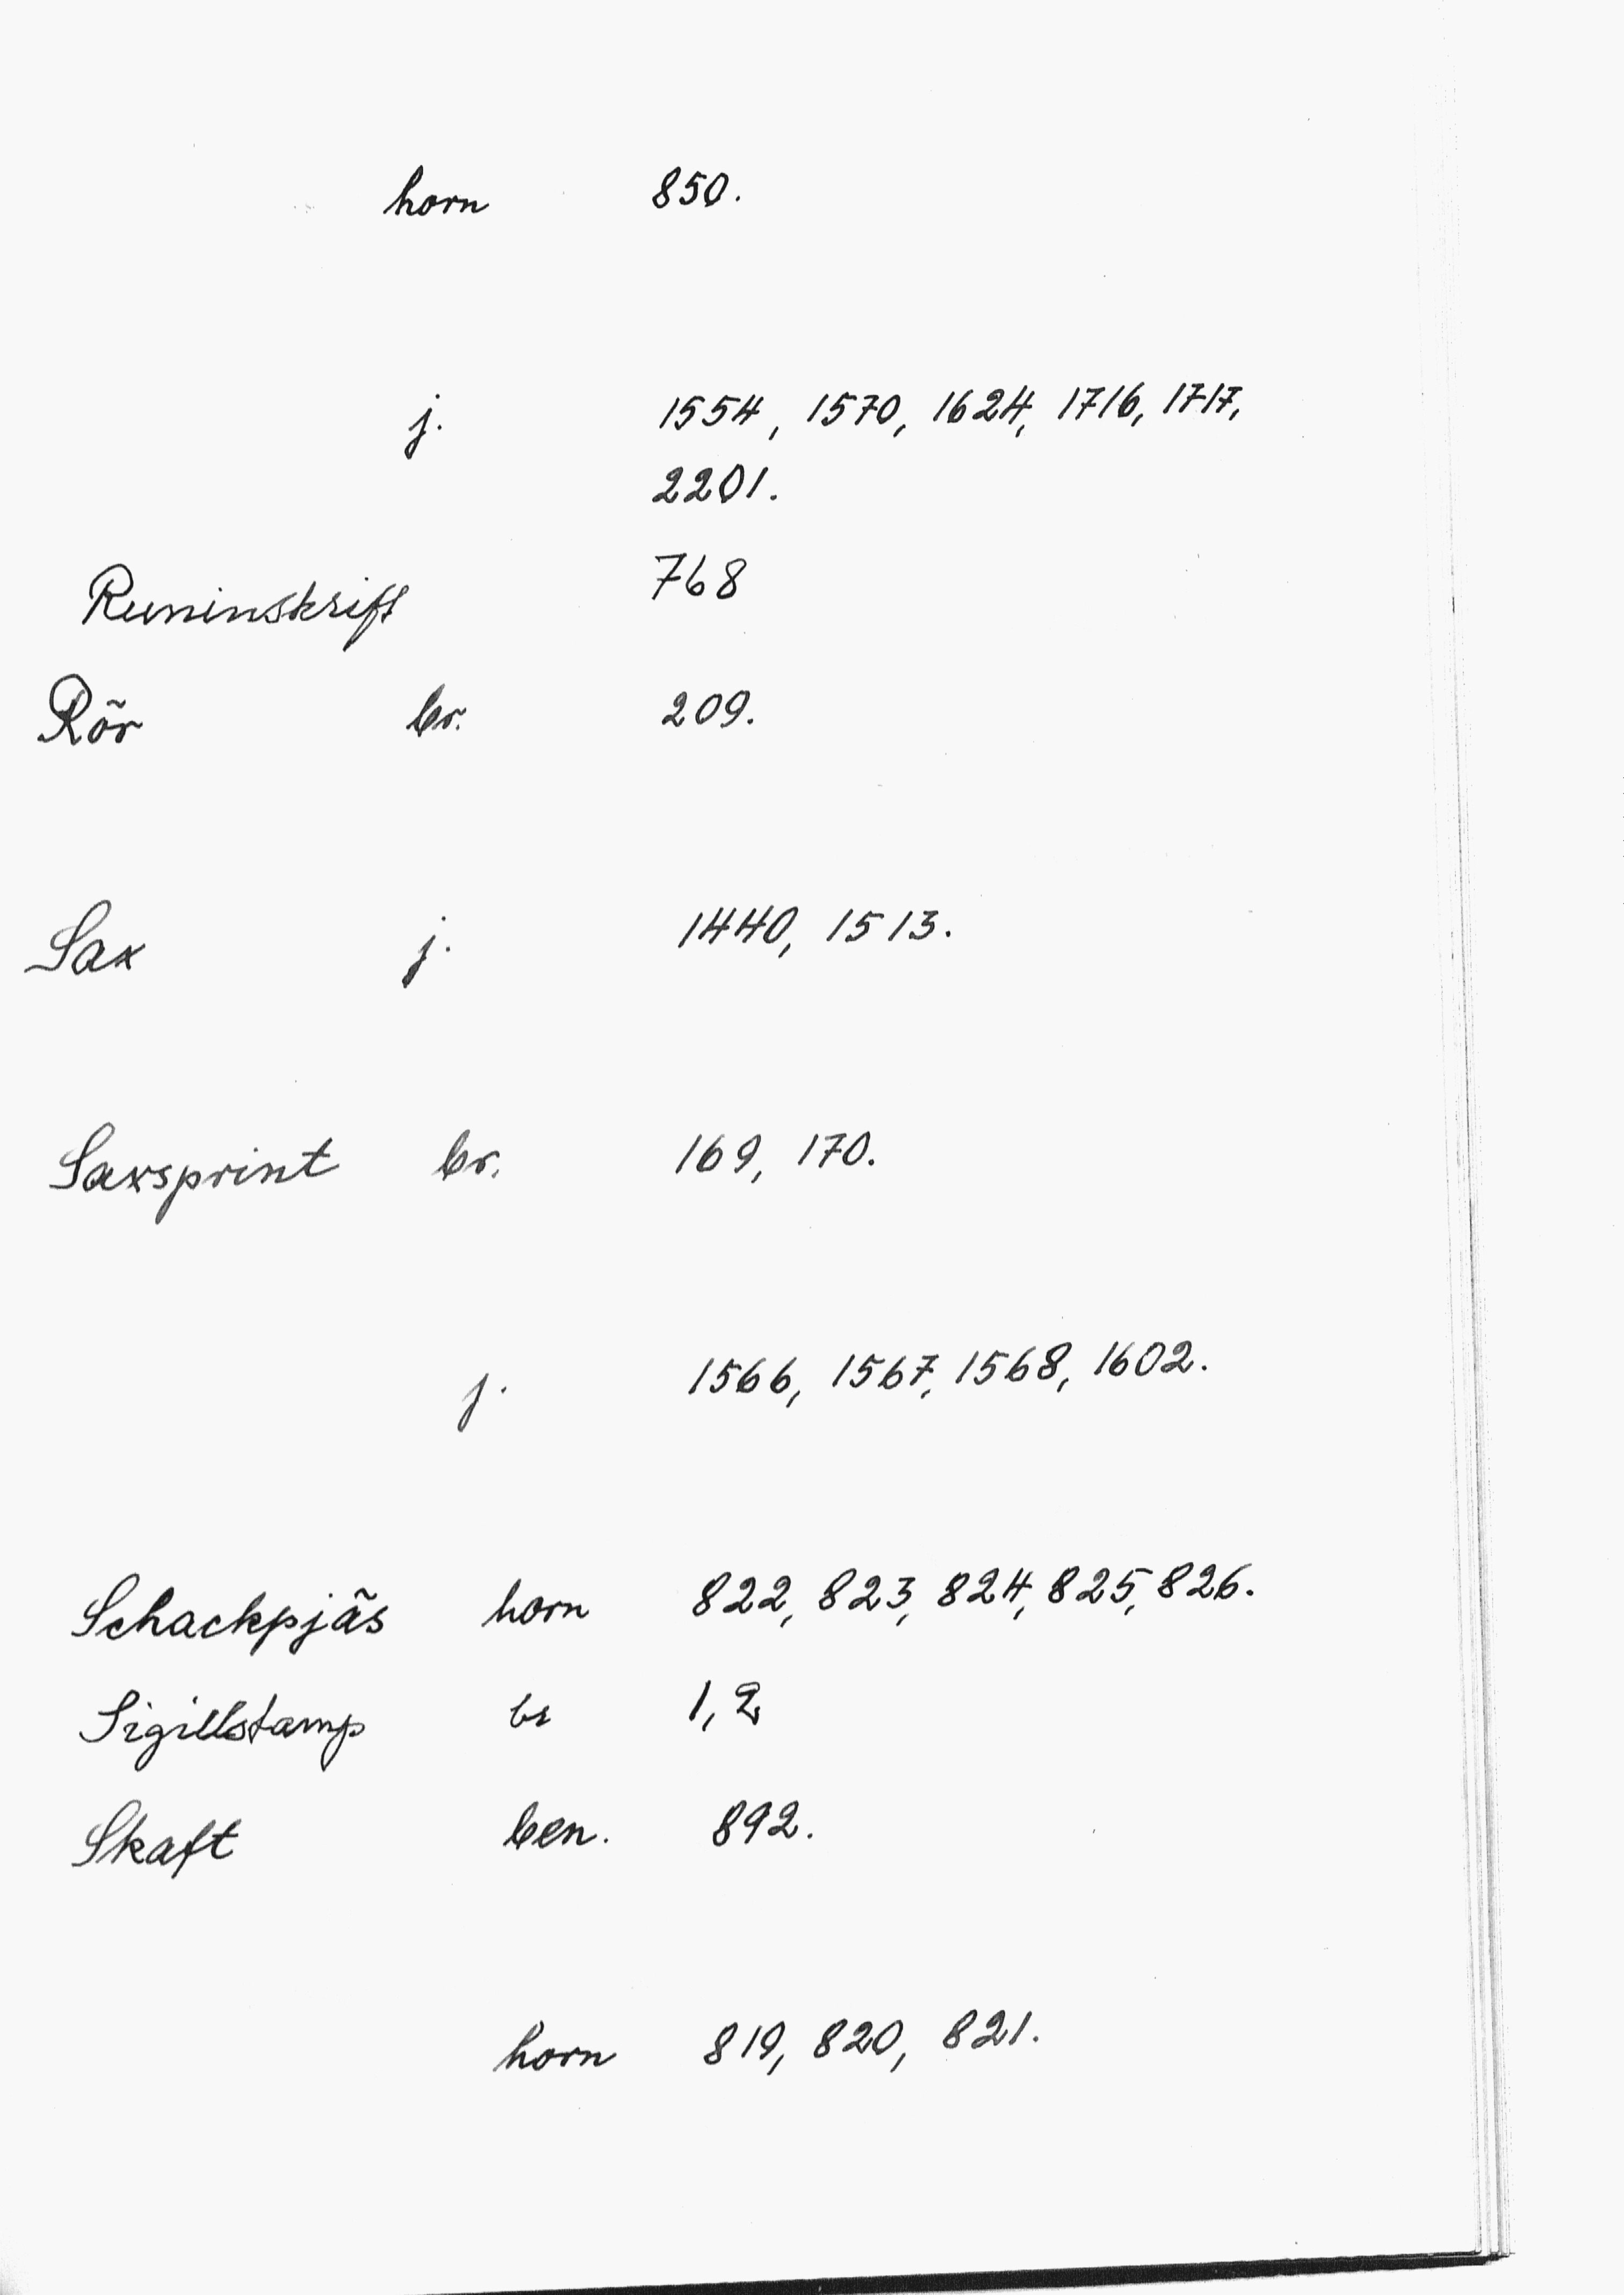 horn 850.
j. 1554, 1570, 1624, 1716, 1717,
2201.
Runinskrift 768
Rör br. 209.
Sax j. 1440, 1513.
Saxsprint br. 169, 170.
j. 1566, 1567, 1568, 1602.
Schackpjäs horn 822, 823, 824, 825, 826.
Sigillstamp br 1, 2
Skaft ben. 892.
horn 819, 820, 821.